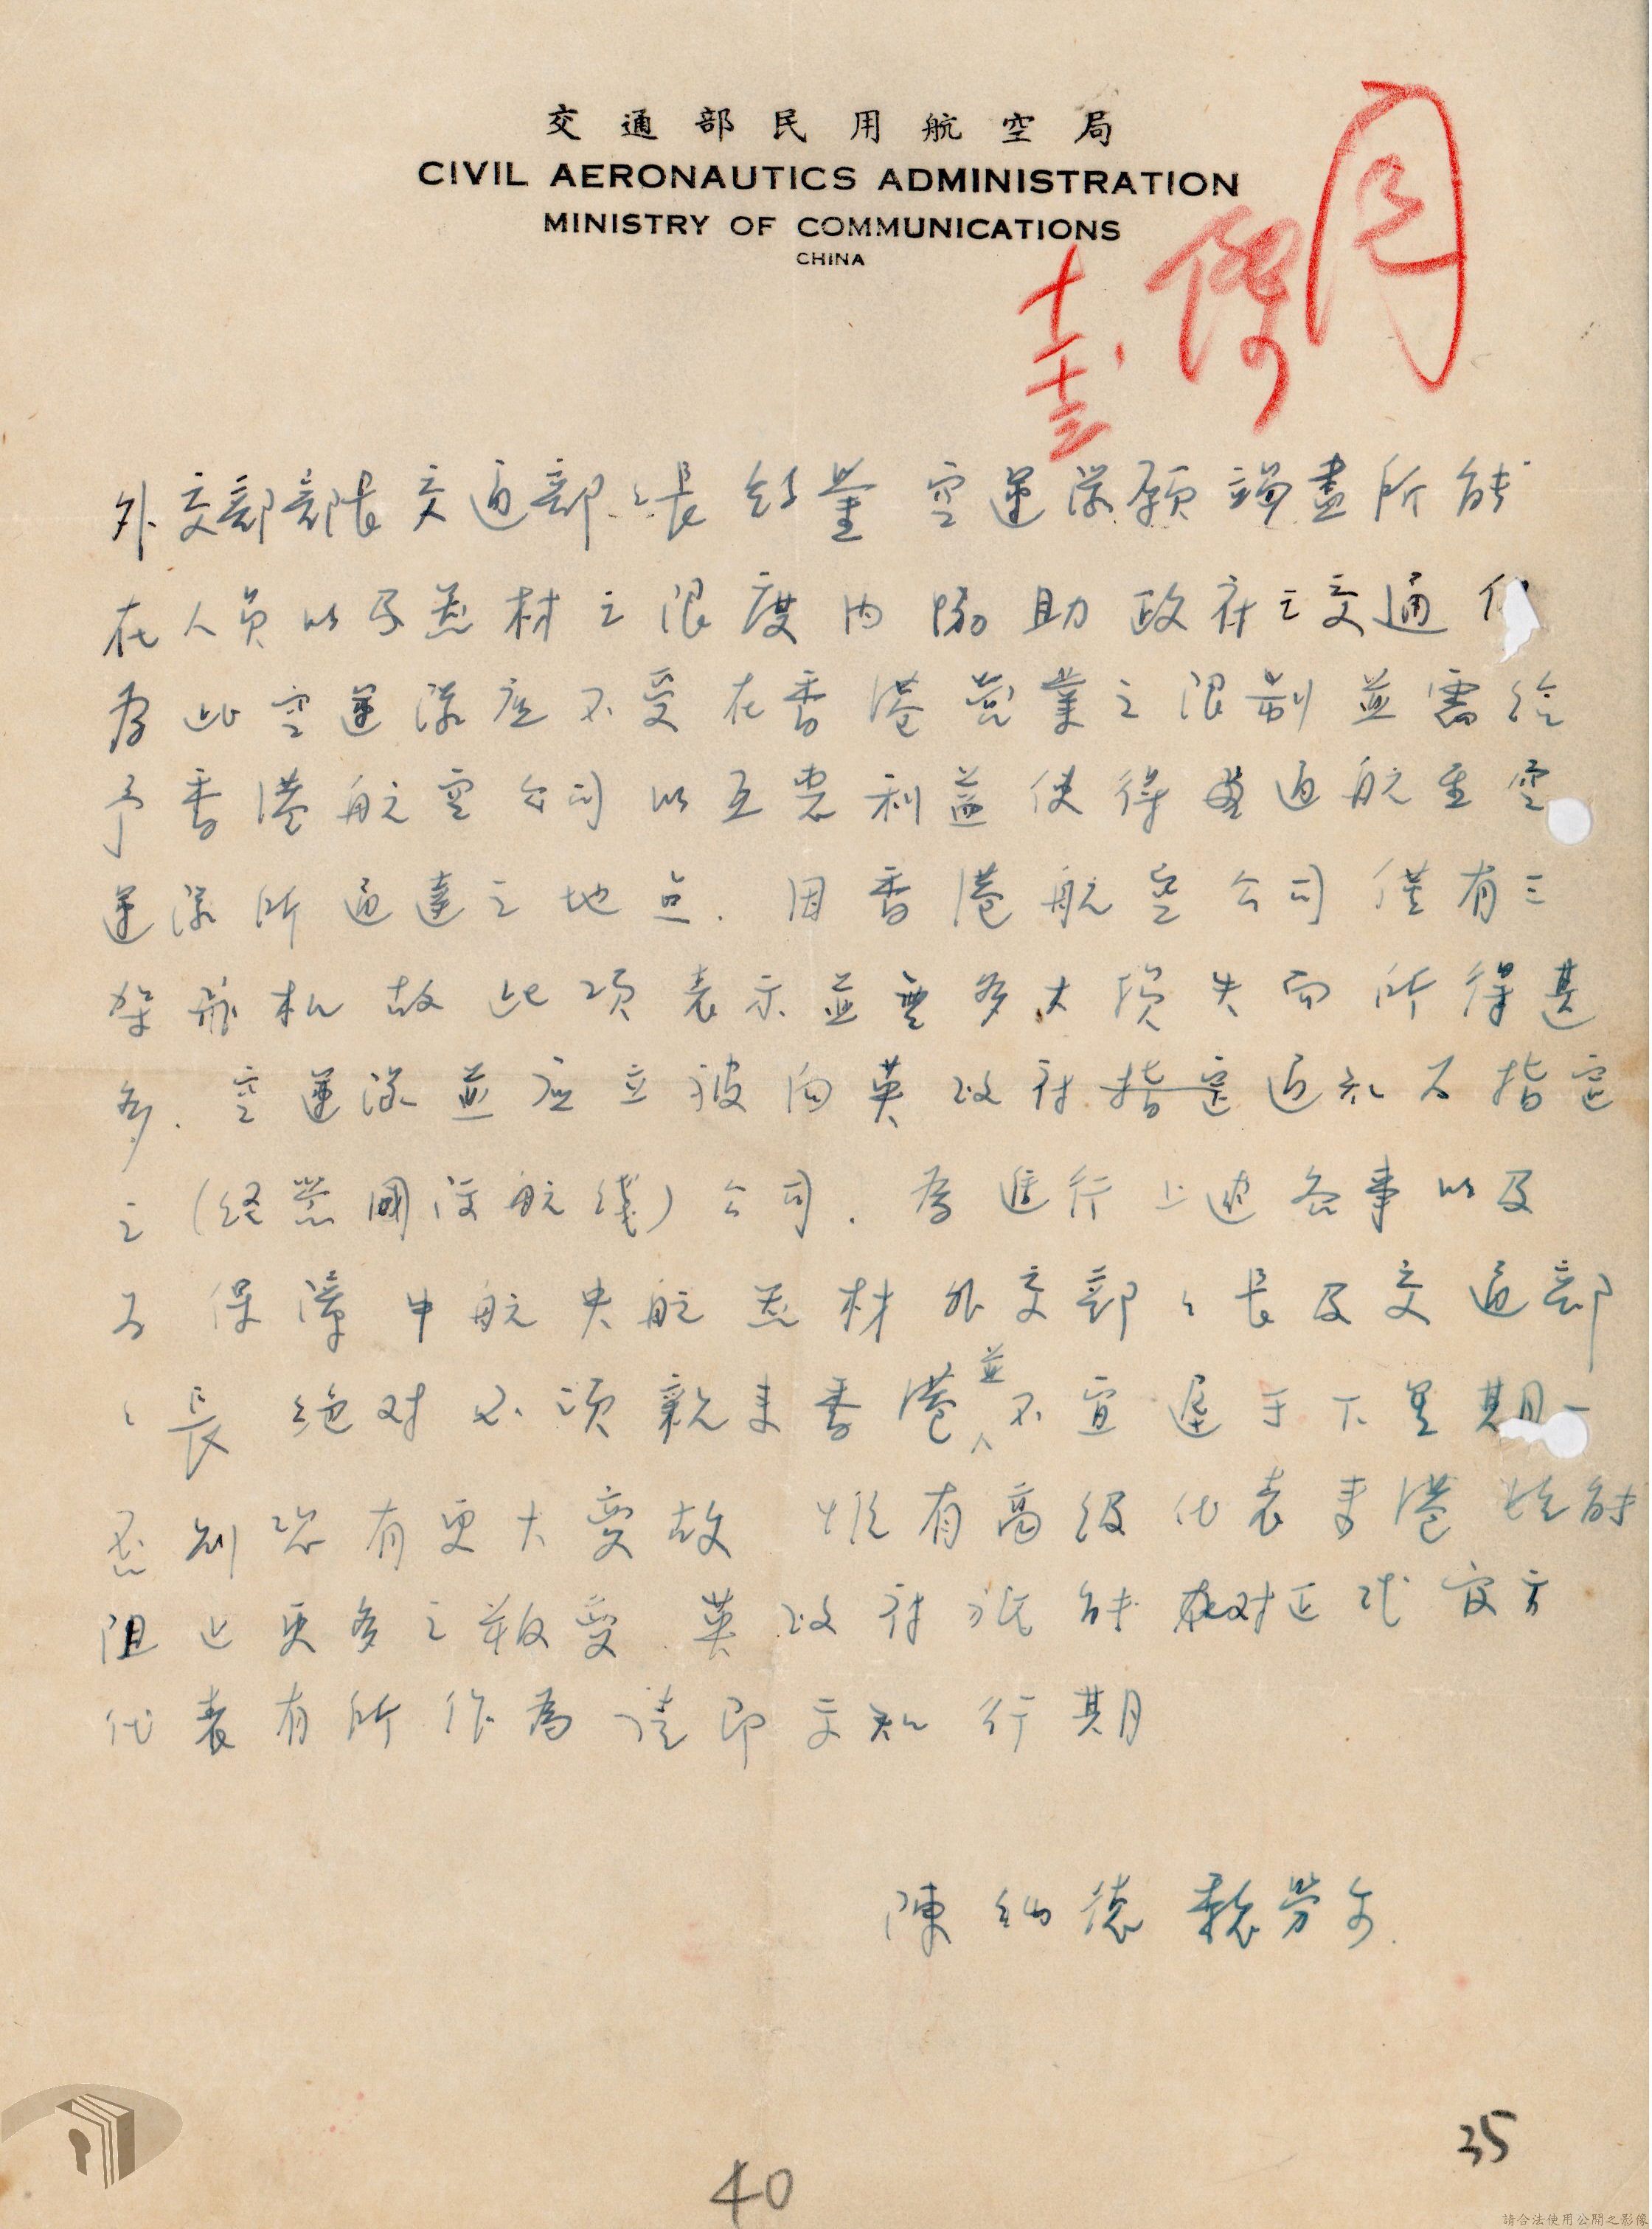 交通部民用航空局
CIVIL AERONAUTICS ADMINISTRATION
MINISTRY OF COMMUNICATIONS
CHINA
外交部部長交通部々長鈞鑒 空運隊願竭盡所能
在人員以及器材之限度內協助政府之交通
為此空運隊應不受在香港營業之限制並需給
予香港航空公司以互惠利益使得通航至空
運隊所通達之地点.因香港航空公司僅有三
架飛机故此項表示並無多大損失而所得甚
多.空運隊並應立被向英政府指定通知为指定
之(经營國際航綫)公司.為進行上述各事以及
为保障中航央航器材外交部々長及交通部
々長絕对必須親来香港並不宜遲于下星期一
否則恐有更大变故 惟有高级代表来港始能
阻止更多之叛变.英政府祇能对正式官方
代表有所作為请即交知行期
陳纳德 魏勞尔.
40
35
請合法使用公開之影像